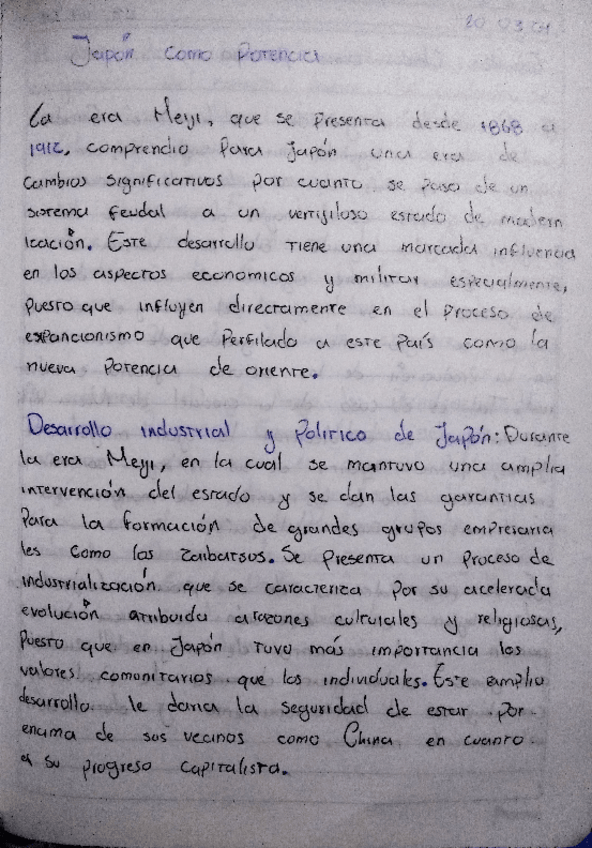 20 03 01
Japón como Potencia
La era Meyi, que se presenta desde 1868 a
1912, comprendio para Japón una era de
cambios significativos por cuanto se paso de un
sistema feudal a un vertijiloso estado de modern
ización. Este desarrollo tiene una marcada influencia
en los aspectos economicos y militar especialmente,
puesto que influyen directamente en el proceso de
expancionismo que perfilado a este país como la
nueva potencia de oriente.
Desarrollo industrial y político de Japón: Durante
la era Meyi, en la cual se mantuvo una amplia
intervención del estado y se dan las garantias
para la formación de grandes grupos empresaria
les como los zaibatsus. Se presenta un proceso de
industrialización que se caracteriza por su acelerada
evolución atribuida a razones culturales y religiosas,
puesto que en Japón tuvo más importancia los
valores comunitarios que los individuales. Este amplio
desarrollo le daria la seguridad de estar por
encima de sus vecinos como China en cuanto
a su progreso capitalista.